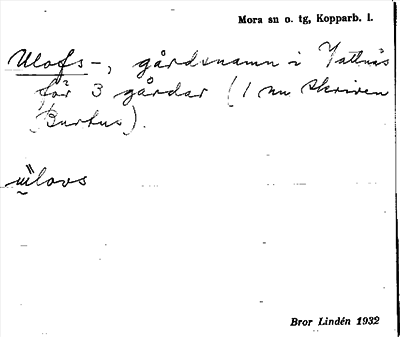 Mora sn o. tg, Kopparb. l.
Ulofs-, gårdsnamn i Vattnäs
för 3 gårdar (1 nu skriven
Burhus).
ülovs
Bror Lindén 1932